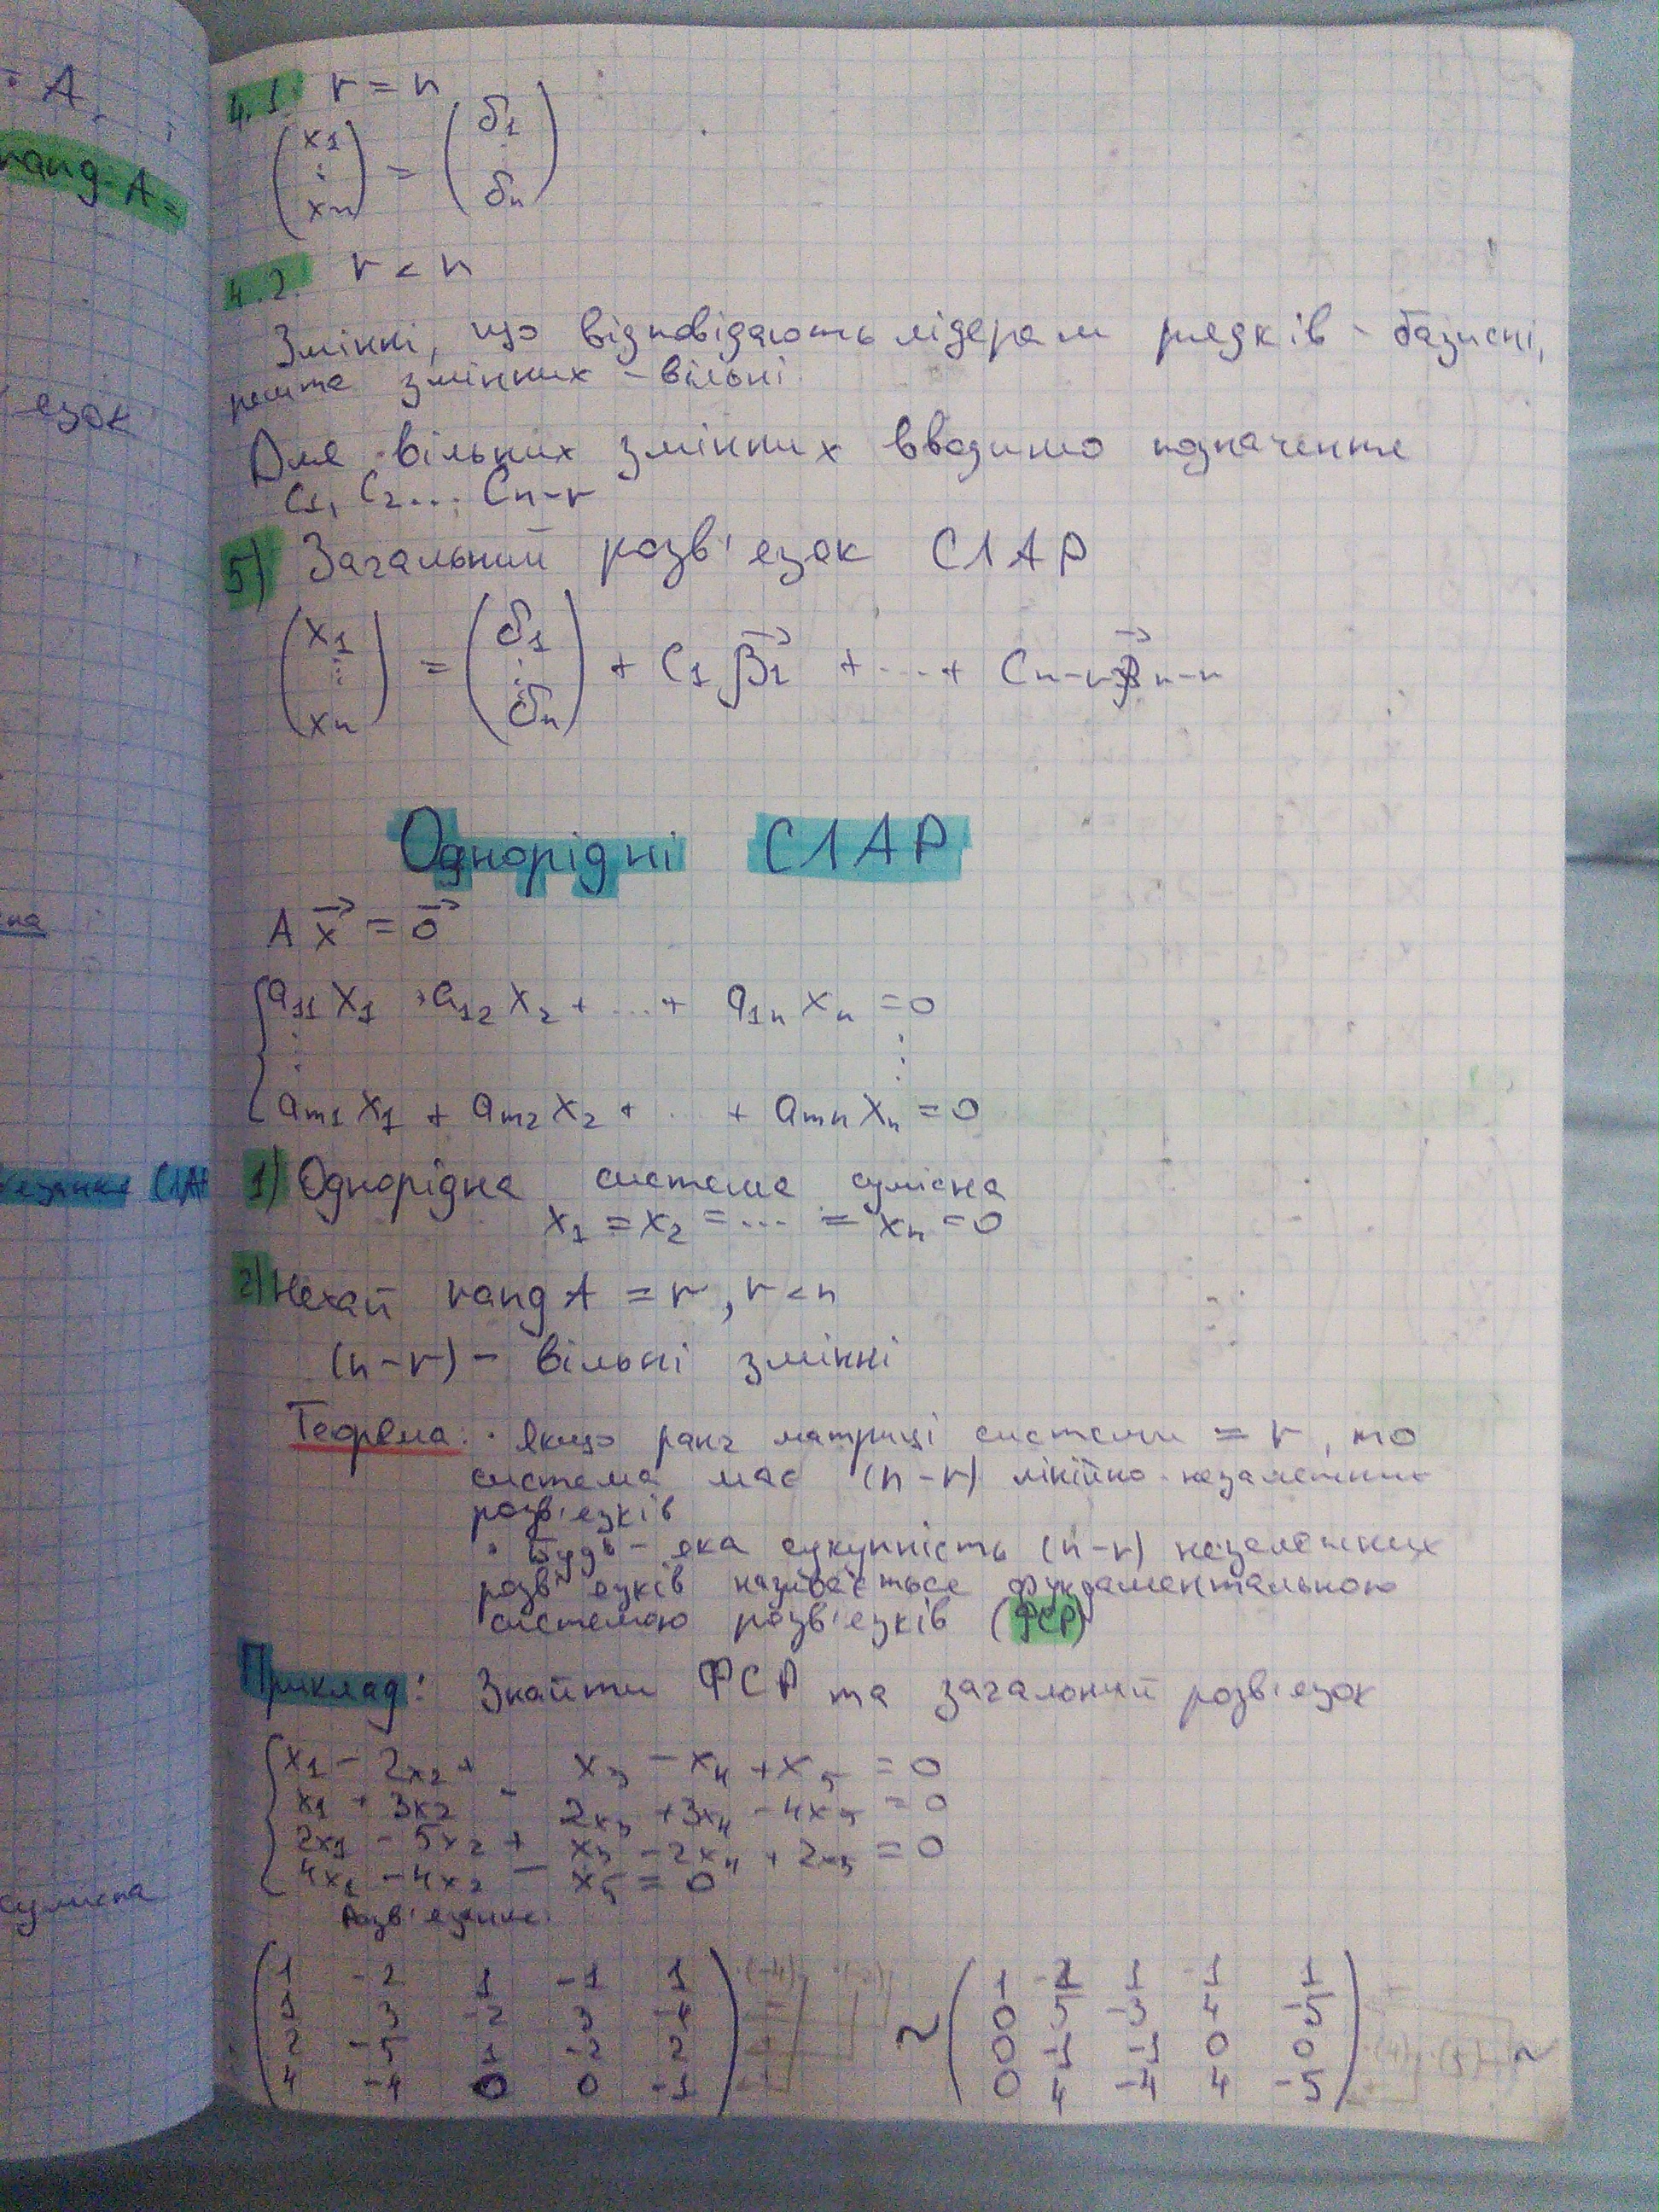 · A
rang A =
язок
сумісна
4.1. r = n
(x1 ⋮ xn) = (δ1 ⋮ δn)
4.2. r < n
Змінні, що відповідають лідерам рядків - базисні,
решта змінних - вільні.
Для вільних змінних вводимо позначення
C1, C2 ... Cn-r
5) Загальний розв'язок СЛАР
(x1 ⋮ xn) = (δ1 ⋮ δn) + C1 β1 + ... + Cn-r βn-r
Однорідні СЛАР
A x = 0
a11 x1 + a12 x2 + ... + a1n xn = 0
⋮ ⋮
am1 x1 + am2 x2 + ... + amn xn = 0
1) Однорідна система сумісна
x1 = x2 = ... = xn = 0
2) Нехай rang A = r, r < n
(n-r) - вільні змінні
Теорема: · Якщо ранг матриці системи = r, то
система має (n-r) лінійно-незалежних
розв'язків
· Будь-яка сукупність (n-r) незалежних
розв'язків називається фундаментальною
системою розв'язків (ФСР)
Приклад: Знайти ФСР та загальний розв'язок
x1 - 2x2 + x3 - x4 + x5 = 0
x1 + 3x2 - 2x3 + 3x4 - 4x5 = 0
2x1 - 5x2 + x3 - 2x4 + 2x5 = 0
4x1 - 4x2 - x5 = 0
Розв'язання:
1 -2 1 -1 1 ~ 1 -2 1 -1 1
1 3 -2 3 -4 0 5 -3 4 -5
2 -5 1 -2 2 0 -1 -1 0 0 ~
4 -4 0 0 -1 0 4 -4 4 -5